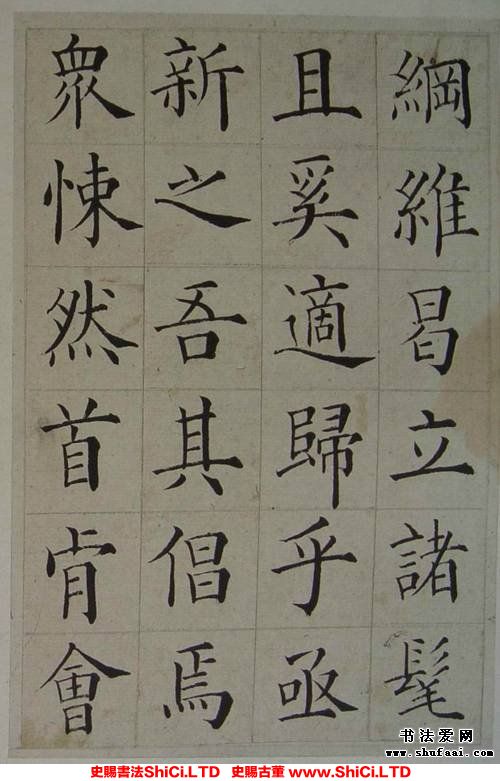 綱維曷立諸髦
且奚適歸乎亟
新之吾其倡焉
衆悚然首肯會
书法爱网
www.shufaai.com
史賜書法ShiCi.LTD 史賜古董 www.ShiCi.LTD